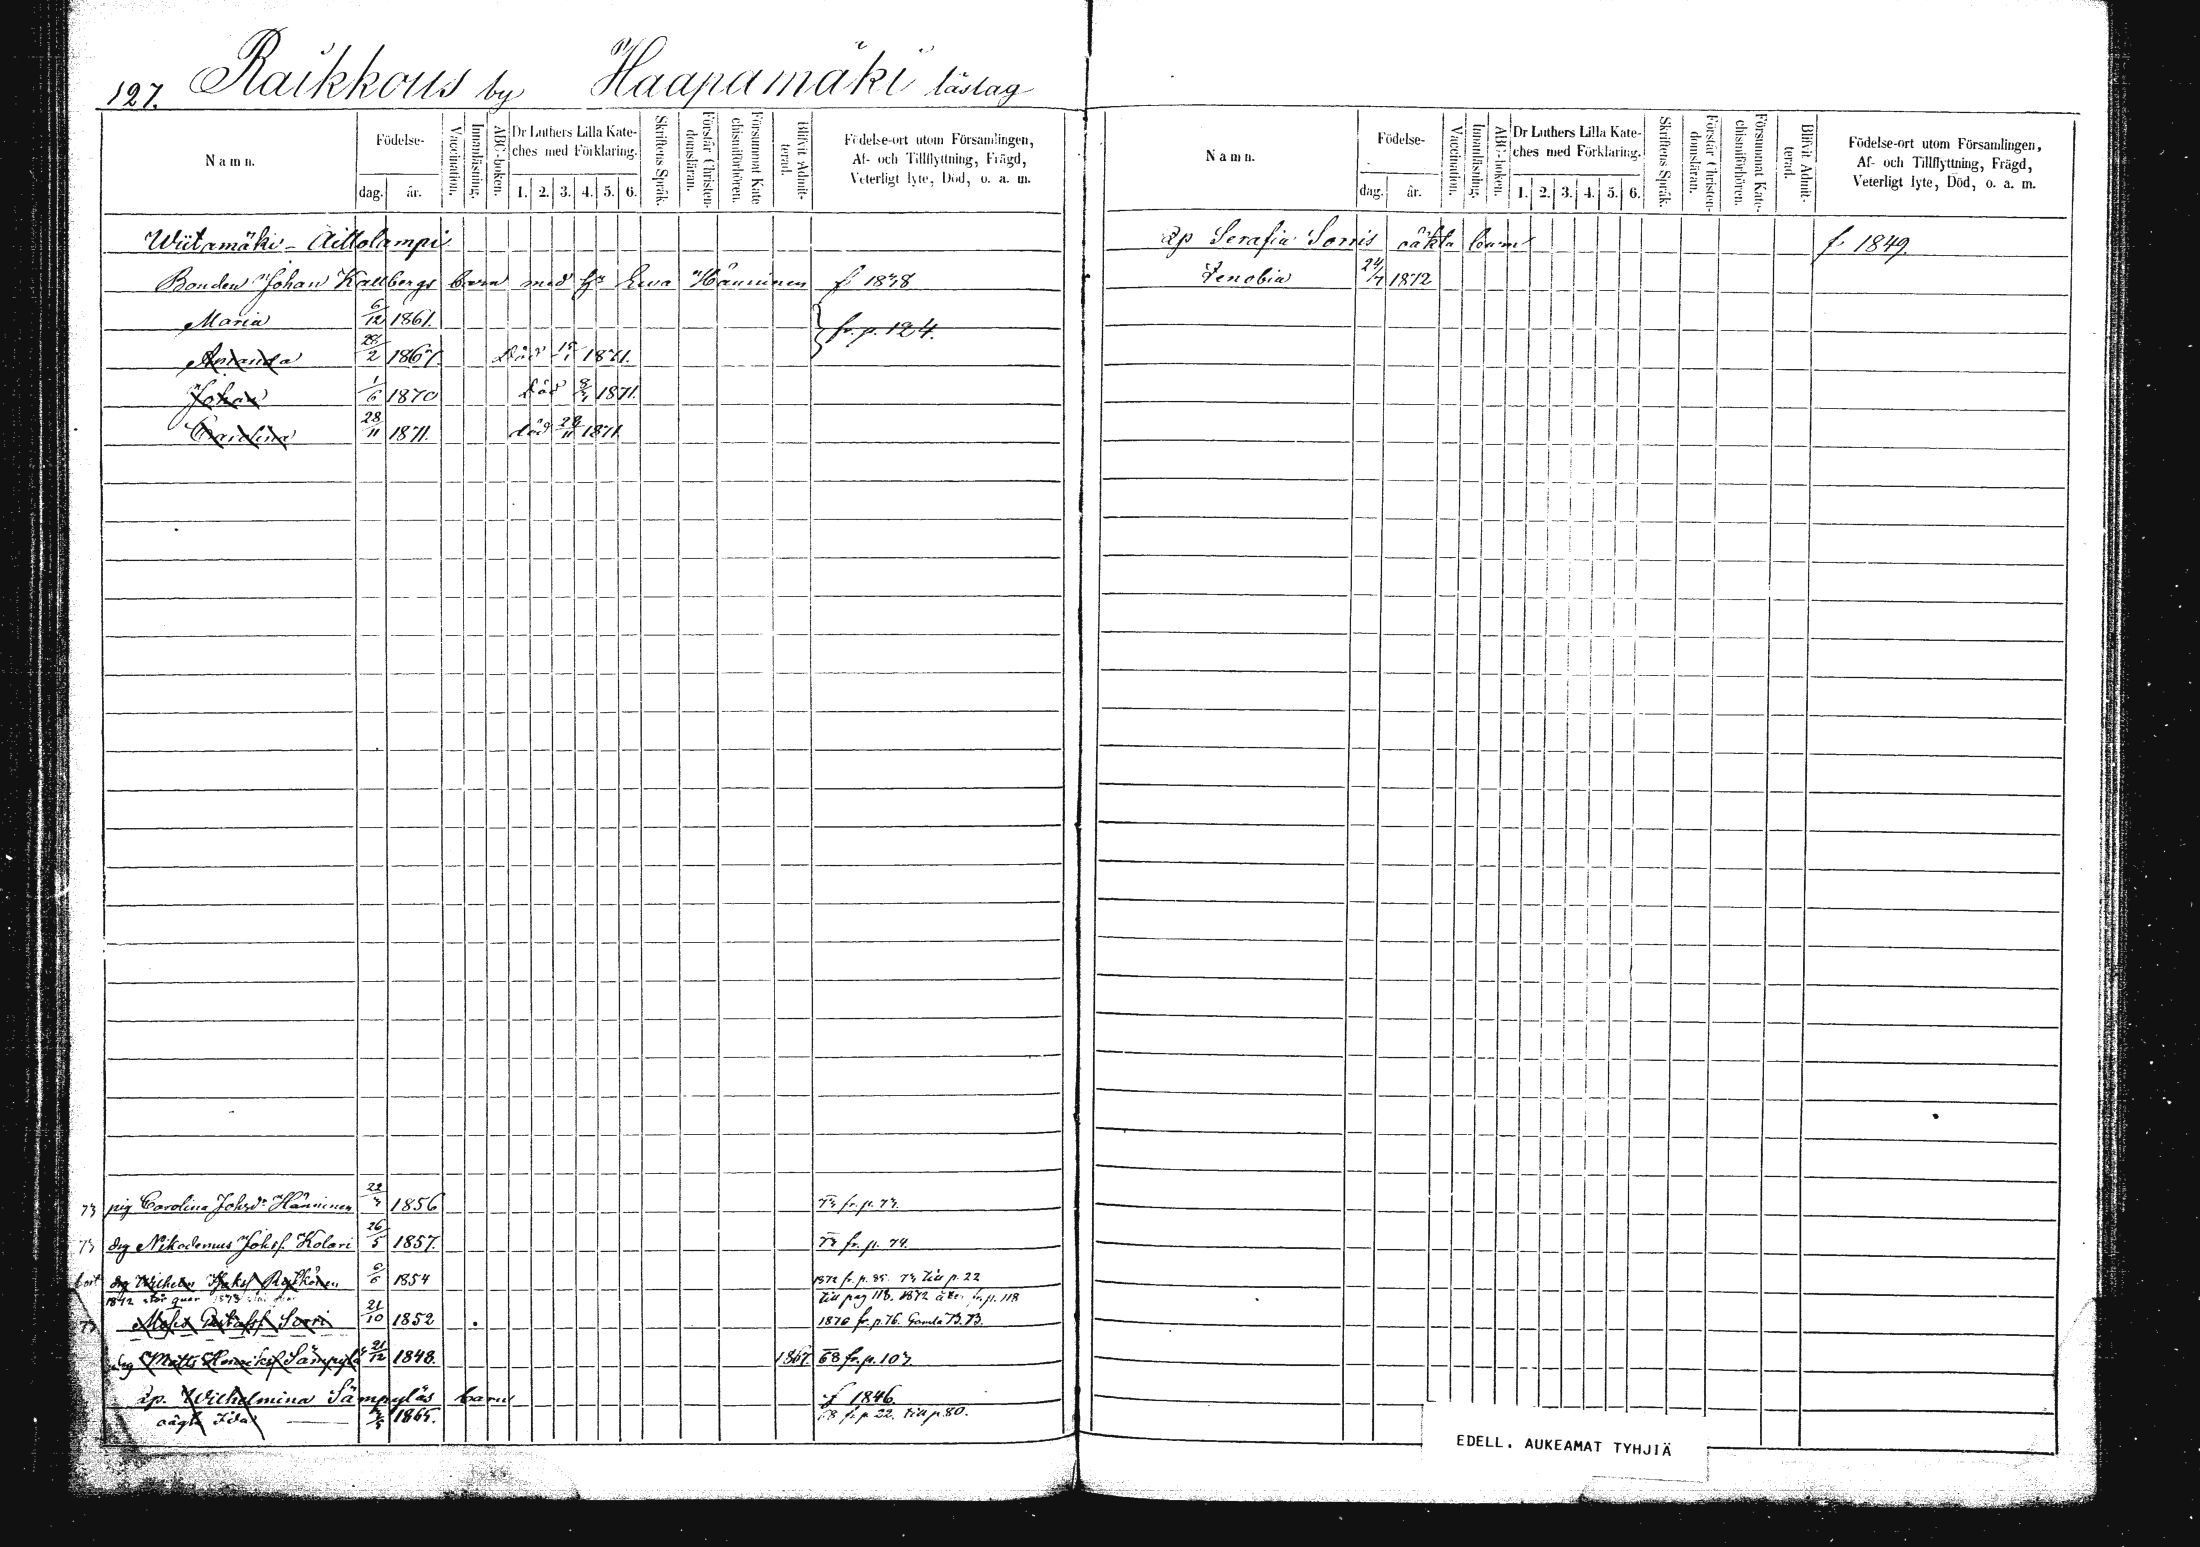 127. Raikkous by Haapamäki läslag
Namn.
Födelse-
dag.
år.
Vaccination.
Innanläsning.
ABC-boken.
Dr Luthers Lilla Kate-
ches med Förklaring.
1. 2. 3. 4. 5. 6.
Skriftens Språk.
Förstår Christen-
domsläran.
Försummat Kate
chismiförhören.
Blifvit Admit-
terad.
Födelse-ort utom Församlingen,
Af- och Tillflyttning, Frägd,
Veterligt lyte, Död, o. a. m.
Wiitamäki - Aittolampi
Bonden Johan Kallbergs barn med h. Ewa Hänninen f 1848
Maria 6/12 1861.
fr. p. 124.
Amanda 2 1867. Död 1871.
Johan 1/6 1870 Död 1871.
Carolina 28/11 1871. död 28/11 1871.
73 pig Carolina Johsdr Hänninen 1856 73 fr. p. 73.
73 drg Nikodemus Johsf. Kolari 26/5 1857. 73 fr. p. 74.
bort drg Wilhelm 6 1854 1872 fr. p. 85. 73 till p. 22
till pag 118. 1872 åter fr. p. 118
73 Moses Gustafsf Sorri 21/10 1852 1870 fr. p. 76. Gamla 73. 73.
drg Matts Henriksf Sämpylä 21/12 1848. 1867. 68 fr. p. 107.
ip. Wilhelmina Sämpyläs barn f 1846.
oägt Ida 1865. 68 fr p 22. till p. 80.
Namn.
Födelse-
dag.
år.
Vaccination.
Innanläsning.
ABC-boken.
Dr Luthers Lilla Kate-
ches med Förklaring.
1. 2. 3. 4. 5. 6.
Skriftens Språk.
Förstår Christen-
domsläran.
Försummat Kate-
chismiförhören.
Blifvit Admit-
terad.
Födelse-ort utom Församlingen,
Af- och Tillflyttning, Frägd,
Veterligt lyte, Död, o. a. m.
ip Serafia Sorris oäkta barn f 1849.
Zenobia 24/7 1872
EDELL. AUKEAMAT TYHJIÄ